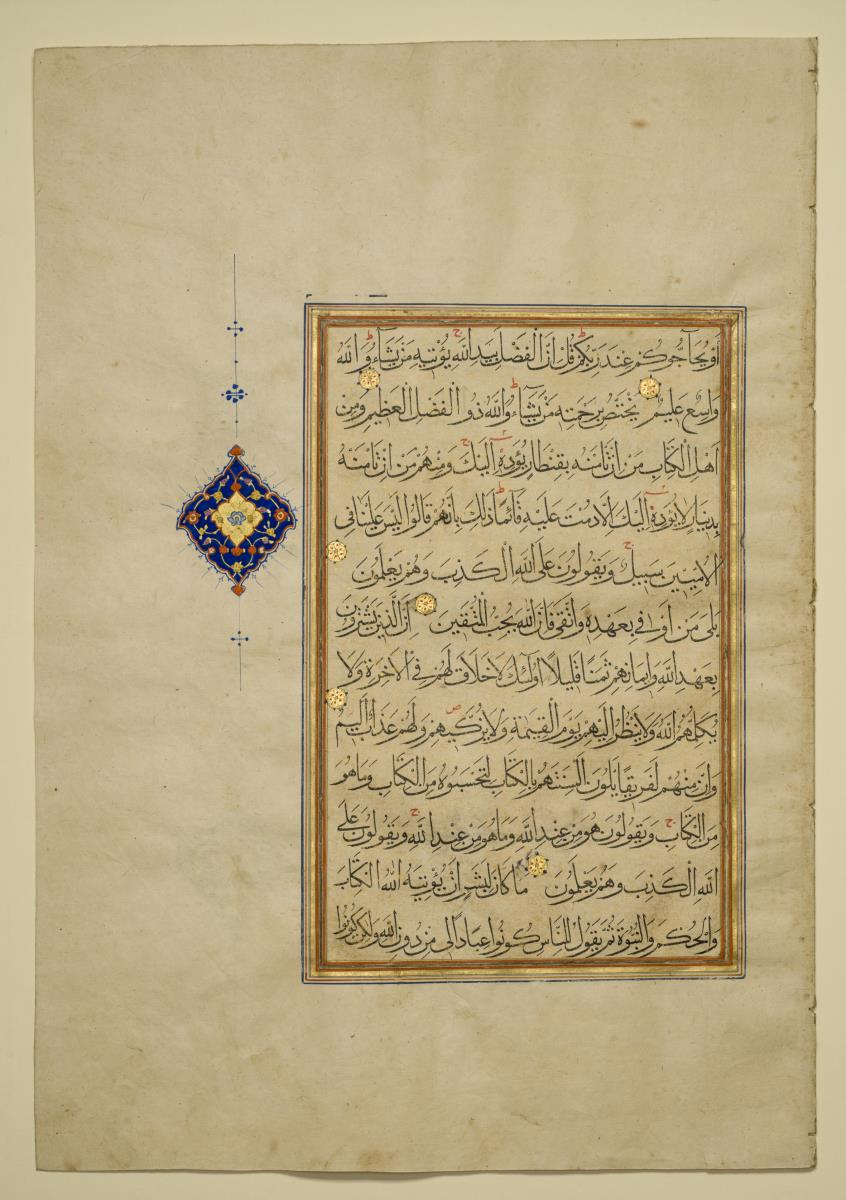 أَوْ يُحَآجُّوكُمْ عِنْدَ رَبِّكُمْ قُلْ اِنَّ الْفَضْلَ بِيَدِ اللّٰهِ يُؤْتِيهِ مَنْ يَشَآءُ وَاللّٰهُ
وَاسِعٌ عَلِيمٌ يَخْتَصُّ بِرَحْمَتِهِ مَنْ يَشَآءُ وَاللّٰهُ ذُو الْفَضْلِ الْعَظِيمِ وَمِنْ
اَهْلِ الْكِتَابِ مَنْ اِنْ تَاْمَنْهُ بِقِنْطَارٍ يُؤَدِّهِ اِلَيْكَ وَمِنْهُمْ مَنْ اِنْ تَاْمَنْهُ
بِدِينَارٍ لَا يُؤَدِّهِ اِلَيْكَ اِلَّا مَادُمْتَ عَلَيْهِ قَآئِمًا ذٰلِكَ بِاَنَّهُمْ قَالُوا لَيْسَ عَلَيْنَا فِي
الْاُمِّيِّينَ سَبِيلٌ وَيَقُولُونَ عَلَى اللّٰهِ الْكَذِبَ وَهُمْ يَعْلَمُونَ
بَلَى مَنْ اَوْفَى بِعَهْدِهِ وَاتَّقَى فَاِنَّ اللّٰهَ يُحِبُّ الْمُتَّقِينَ اِنَّ الَّذِينَ يَشْتَرُونَ
بِعَهْدِ اللّٰهِ وَاَيْمَانِهِمْ ثَمَنًا قَلِيلًا اُولٰٓئِكَ لَا خَلَاقَ لَهُمْ فِي الْاٰخِرَةِ وَلَا
يُكَلِّمُهُمُ اللّٰهُ وَلَا يَنْظُرُ اِلَيْهِمْ يَوْمَ الْقِيٰمَةِ وَلَا يُزَكِّيهِمْ وَلَهُمْ عَذَابٌ اَلِيمٌ
وَاِنَّ مِنْهُمْ لَفَرِيقًا يَلْوُنَ اَلْسِنَتَهُمْ بِالْكِتَابِ لِتَحْسَبُوهُ مِنَ الْكِتَابِ وَمَا هُوَ
مِنَ الْكِتَابِ وَيَقُولُونَ هُوَ مِنْ عِنْدِ اللّٰهِ وَمَا هُوَ مِنْ عِنْدِ اللّٰهِ وَيَقُولُونَ عَلَى
اللّٰهِ الْكَذِبَ وَهُمْ يَعْلَمُونَ مَا كَانَ لِبَشَرٍ اَنْ يُؤْتِيَهُ اللّٰهُ الْكِتَابَ
وَالْحُكْمَ وَالنُّبُوَّةَ ثُمَّ يَقُولَ لِلنَّاسِ كُونُوا عِبَادًا لِي مِنْ دُونِ اللّٰهِ وَلٰكِنْ كُونُوا